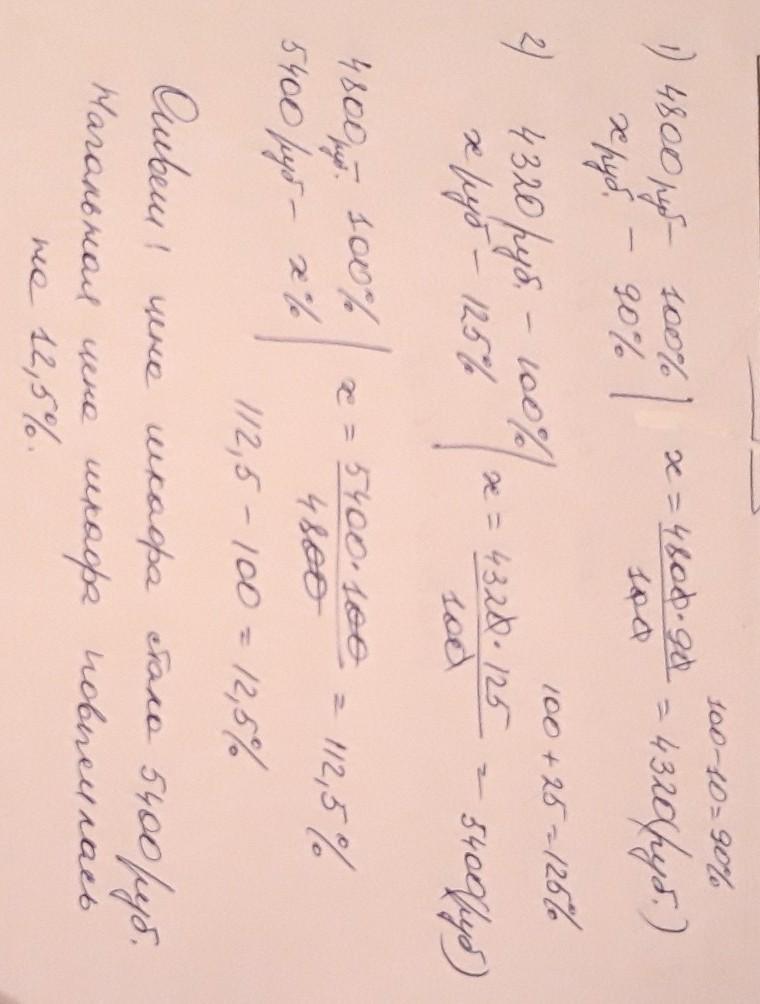 100-10=90%
1) 4800 руб - 100%
x руб. - 90%
x = 4800·90 / 100 = 4320(руб.)
100+25=125%
2) 4320 руб. - 100%
x руб - 125%
x = 4320·125 / 100 = 5400(руб)
4800 руб. - 100%
5400 руб - x%
x = 5400·100 / 4800 = 112,5%
112,5 - 100 = 12,5%
Ответ: цена шкафа стала 5400 руб.
Начальная цена шкафа повысилась
на 12,5%.